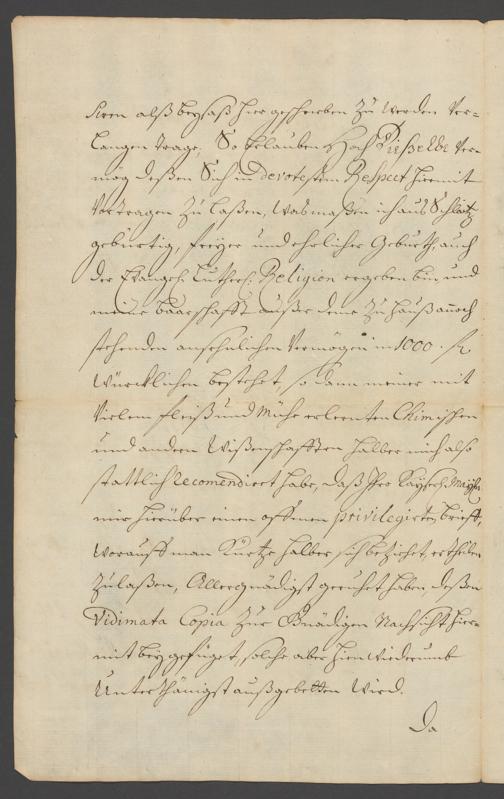 dern alß beysaß hier geschrieben zu werden Ver-
langen trage; So Erlauben Hoch Dieselbe Ver-
mög deßen Sich in devotestem Respect hiermit
Vortragen zu laßen, Was maßen ich aus Schlaitz
gebürtig, freyer und ehrlicher Geburth, auch
der Evangel: Luther: Religion ergeben bin, und
meine Baarschafft außer deme zu Hauß annoch
stehenden ansehnlichen Vermögen in 1000. fl
Würcklichen bestehet, so dann meiner mit
Vielem fleiß und Mühe erlernten Chimischen
und andern Wißenschafften halber mich also
stattlich recomendiert habe, daß Ihro Kayserl: Mayst:
mir hierüber einen offenen privilegirten brieff,
Worauff man Kürtze halber sich beziehet, ertheilen
zulaßen, Allergnädigst geruhet haben, deßen
Vidimata Copia zur Gnädigen Nachsicht hier-
mit beygefüget, solche aber hinwiederumb
Unterthänigst außgebetten Wird.
Da